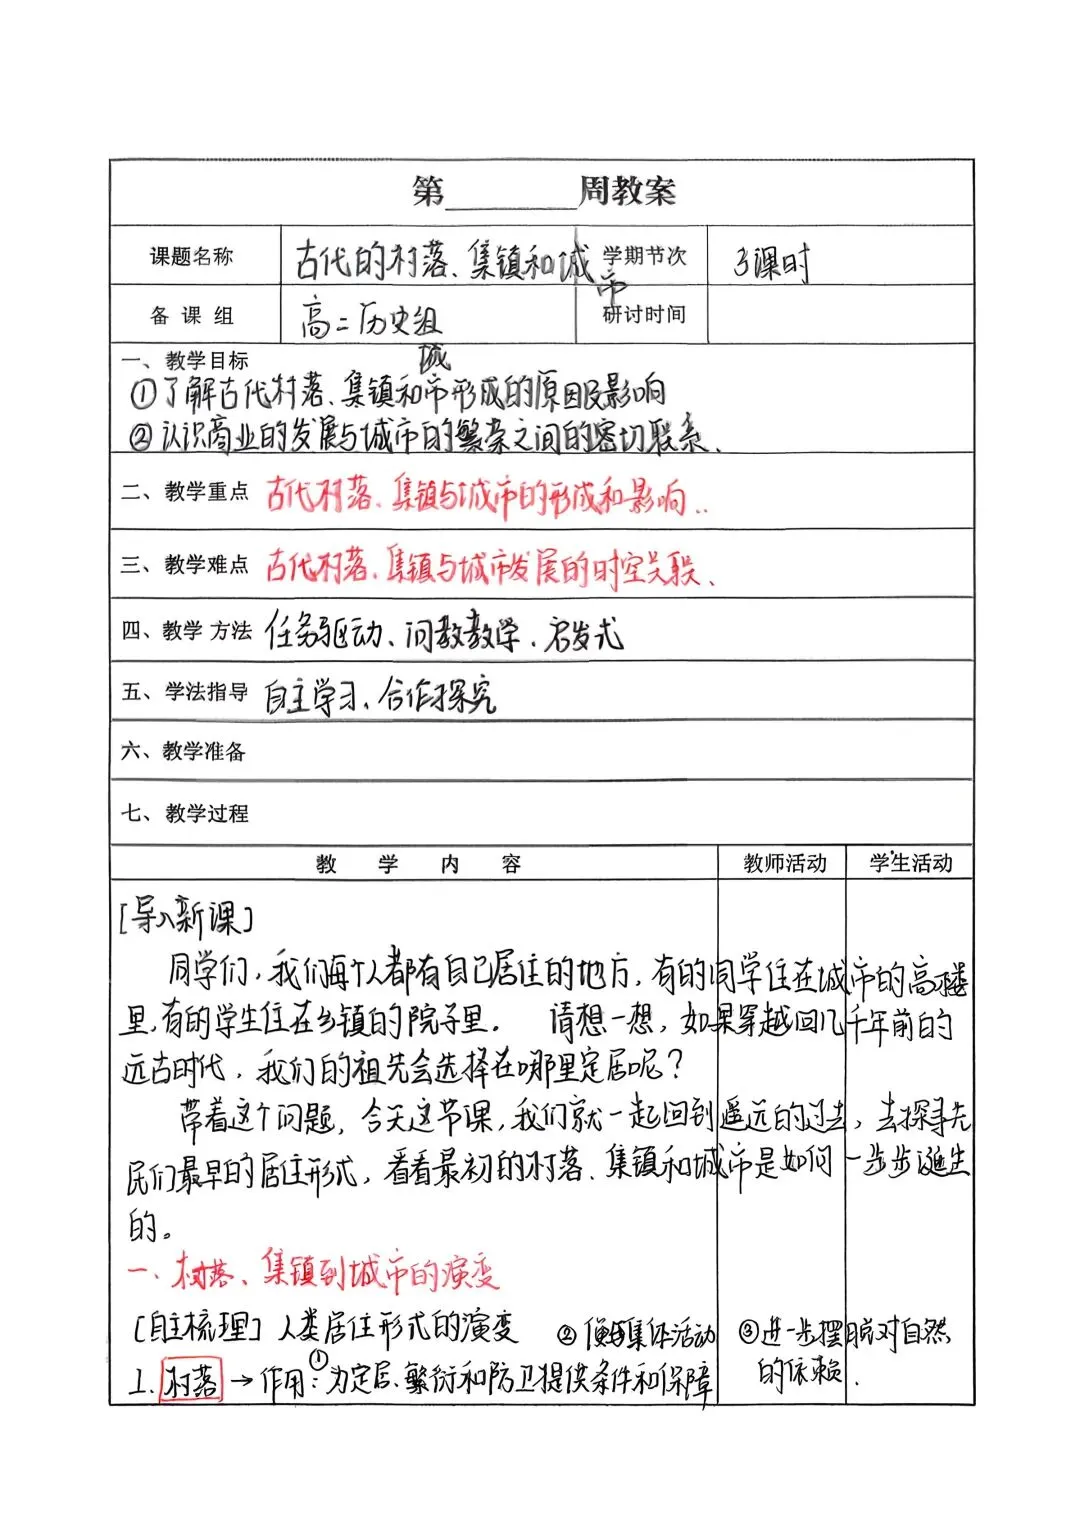 第________周教案
课题名称 古代的村落、集镇和城市 学期节次 3课时
备课组 高二历史组 研讨时间
一、教学目标
①了解古代村落、集镇和城市形成的原因及影响
②认识商业的发展与城市的繁荣之间的密切联系、
二、教学重点 古代村落、集镇与城市的形成和影响..
三、教学难点 古代村落、集镇与城市发展的时空关联、
四、教学方法 任务驱动、问教教学、启发式
五、学法指导 自主学习、合作探究
六、教学准备
七、教学过程
教学内容 教师活动 学生活动
[导入新课]
同学们，我们每个人都有自己居住的地方，有的同学住在城市的高楼
里，有的学生住在乡镇的院子里。 请想一想，如果穿越回几千年前的
远古时代，我们的祖先会选择在哪里定居呢？
带着这个问题，今天这节课，我们就一起回到遥远的过去，去探寻先
民们最早的居住形式，看看最初的村落、集镇和城市是如何一步步诞生
的。
一、村落、集镇到城市的演变
[自主梳理] 人类居住形式的演变 ②便于集体活动 ③进一步摆脱对自然
1. 村落 → 作用：①为定居、繁衍和防卫提供条件和保障 的依赖.